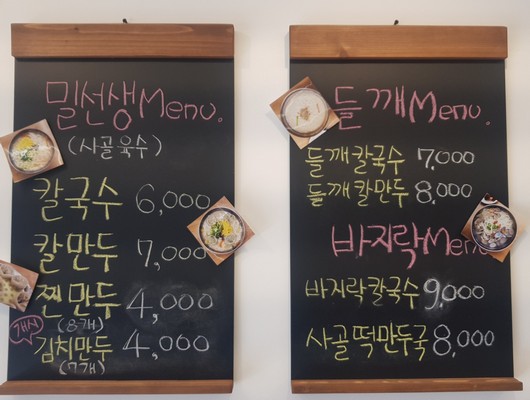 밀선생Menu.
(사골육수)
칼국수 6,000
칼만두 7,000
찐만두 4,000
(8개)
개시
김치만두 4,000
(7개)
들깨Menu.
들깨칼국수 7,000
들깨칼만두 8,000
바지락Menu
바지락칼국수 9,000
사골떡만두국 8,000